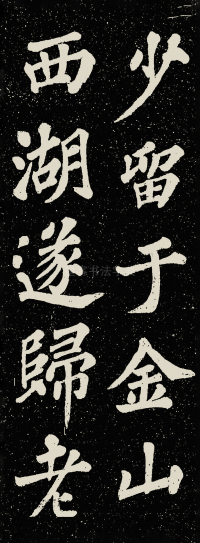 少留于金山
西湖遂歸老